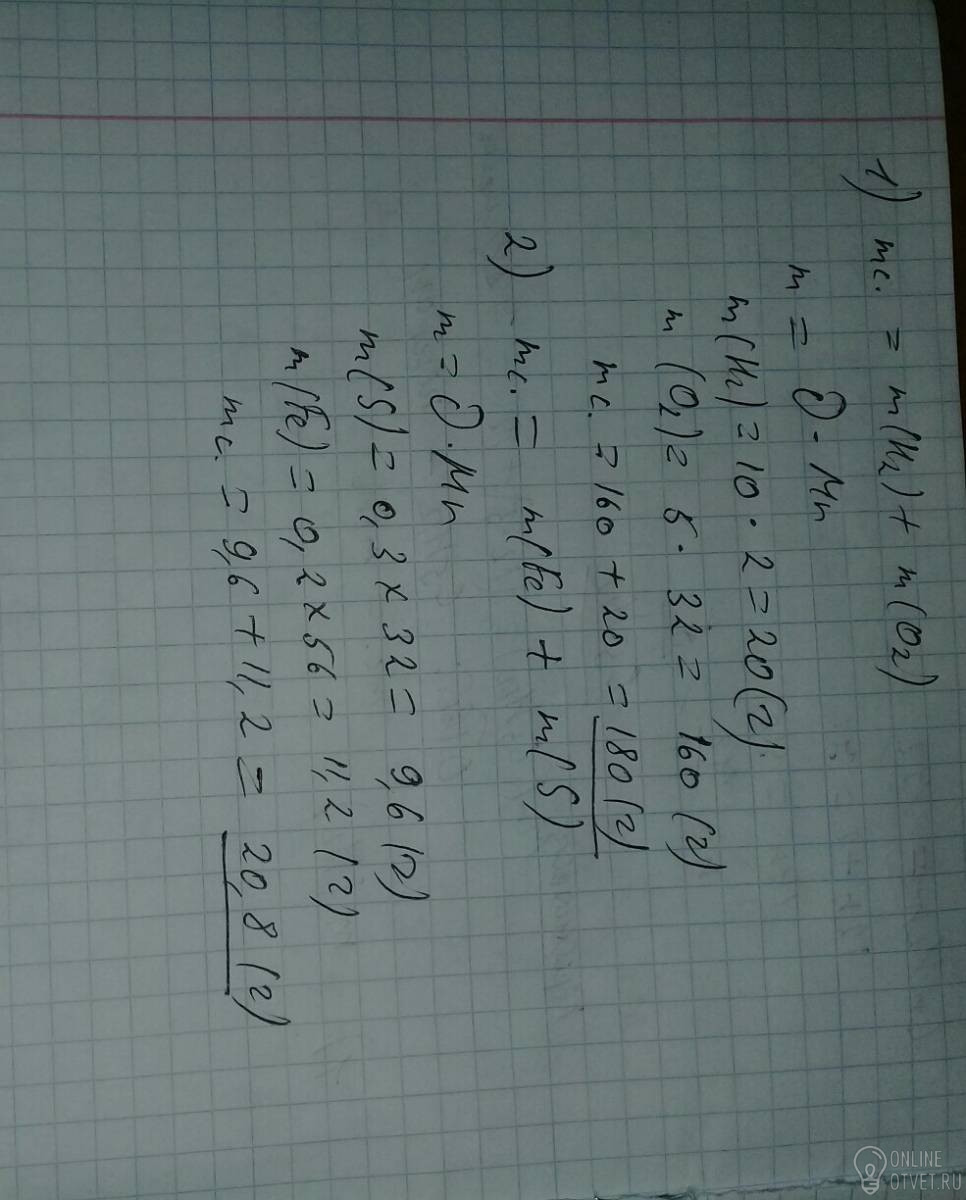 1) mс. = m(H₂) + m(O₂)
m = ∂ · Mn
m(H₂) = 10 · 2 = 20 (г).
m (O₂) = 5 · 32 = 160 (г)
mс. = 160 + 20 = 180 (г)
2) mс. = m(Fe) + m(S)
m = ∂ · Mn
m(S) = 0,3 × 32 = 9,6 (г)
m(Fe) = 0,2 × 56 = 11,2 (г)
mс. = 9,6 + 11,2 = 20,8 (г)
ONLINE
OTVET.RU